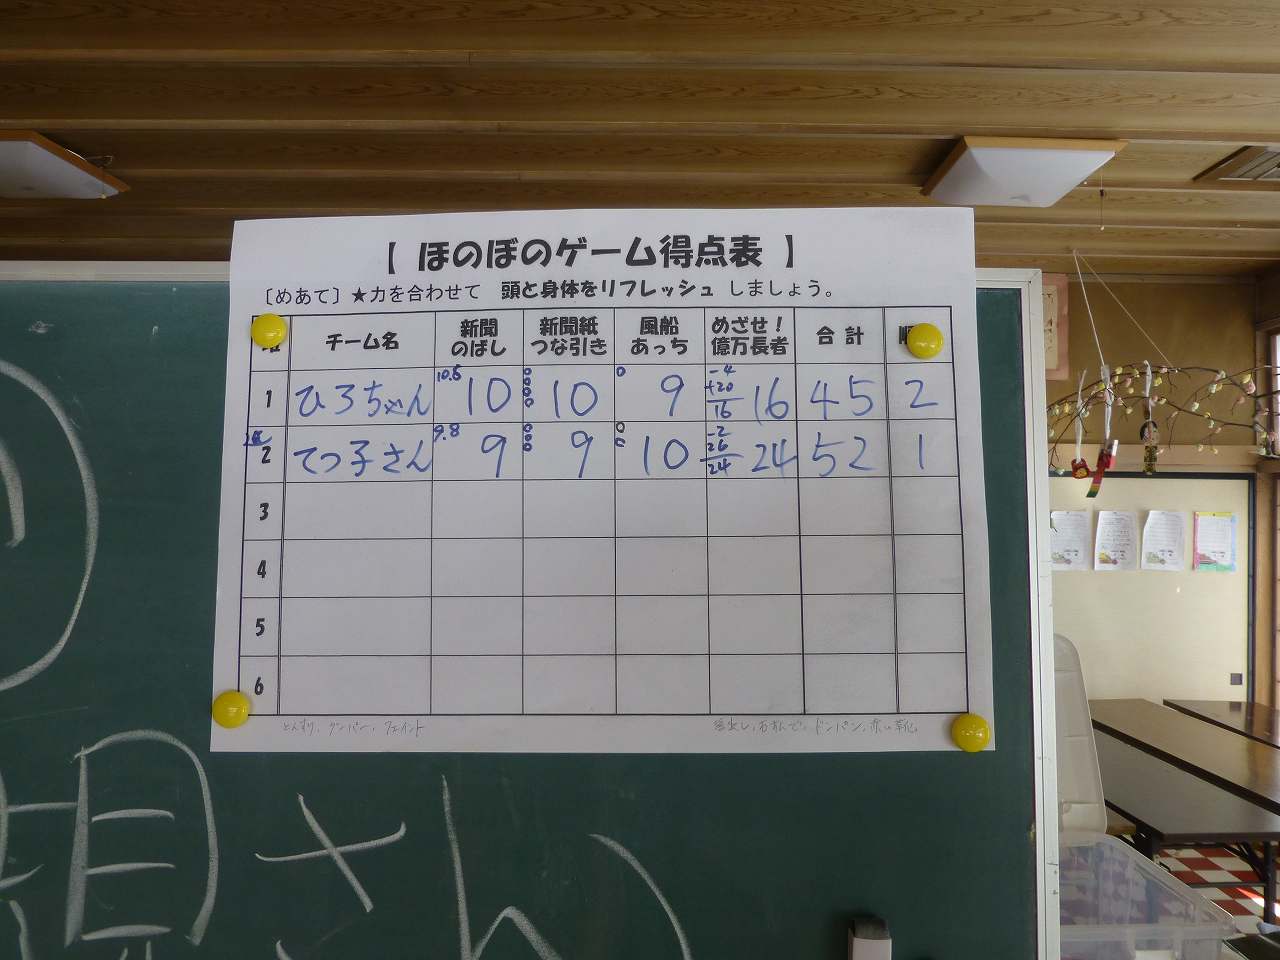 【 ほのぼのゲーム得点表 】
〔めあて〕★力を合わせて 頭と身体をリフレッシュ しましょう。
チーム名 新聞のばし 新聞紙つな引き 風船あっち めざせ！億万長者 合計 順
1 ひろちゃん 10.5 10 10 9 -4 +20 16 16 45 2
2 てつ子さん 9.8 9 9 10 -2 26 24 24 52 1
3
4
5
6
ドンパン、赤い靴
さん